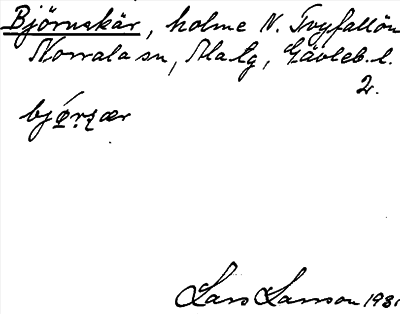 Björnskär, holme N. Tvyfallön
Norrala sn, Ala lg, Gävleb. l.
2.
bjǿṛʂær
Lars Larsson 1931